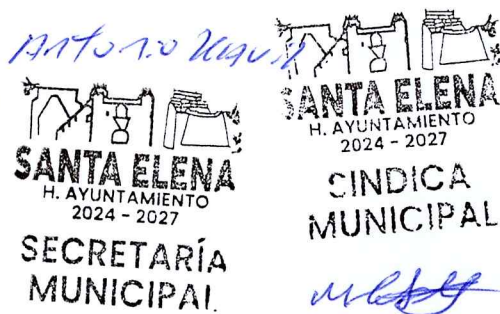 Antonio
SANTA ELENA
H. AYUNTAMIENTO
2024 - 2027
SECRETARÍA
MUNICIPAL
SANTA ELENA
H. AYUNTAMIENTO
2024 - 2027
SINDICA
MUNICIPAL